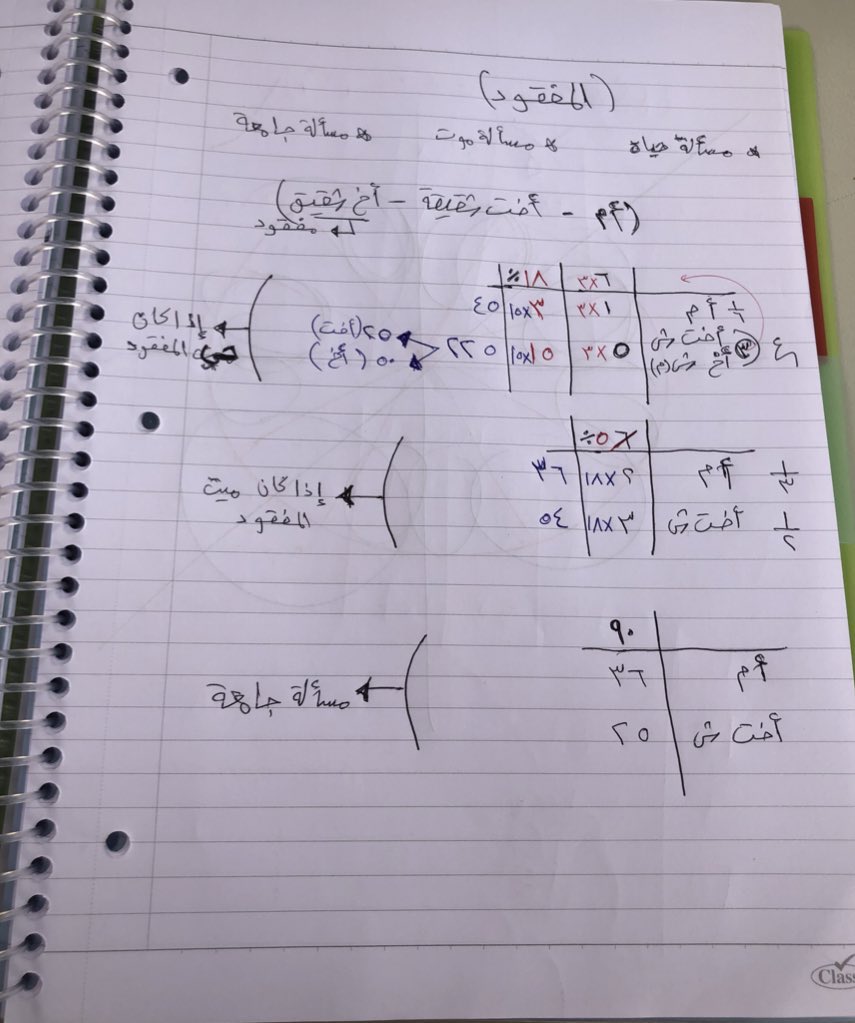 (المفقود)
* مسألة حياة * مسألة موت * مسألة جامعة
(أم - أخت شقيقة - أخ شقيق)
مفقود
٣×٦ ÷١٨
١/٦ أم ٣×١ ١٥×٣ ٤٥
ع أخت ش ٣ ٣×٥ ١٥×١٥ ٢٢٥ ٢٥ (أخت)
أخ ش (م) ٥٠ (أخ)
إذا كان
حي المفقود
÷٥ ٦
١/٣ أم ١٨×٢ ٣٦
١/٢ أخت ش ١٨×٣ ٥٤
إذا كان ميت
المفقود
٩٠
أم ٣٦
أخت ش ٢٥
مسألة جامعة
Class